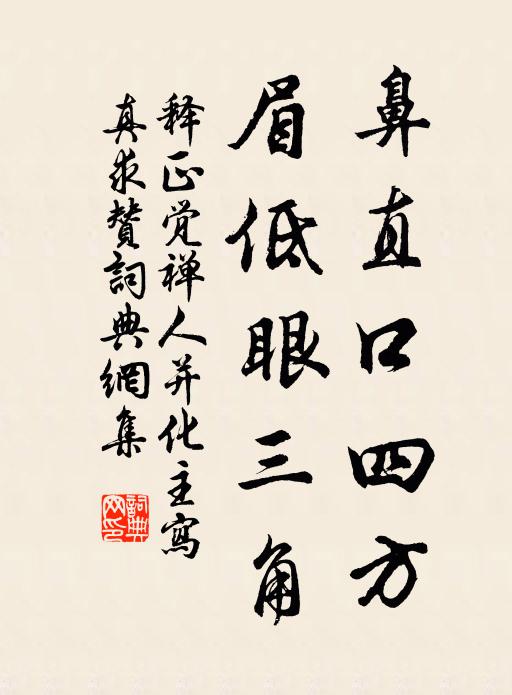 鼻直口四方
眉低眼三角
释正觉禅人并化主寫
真求赞詞典網集
詞典
网印